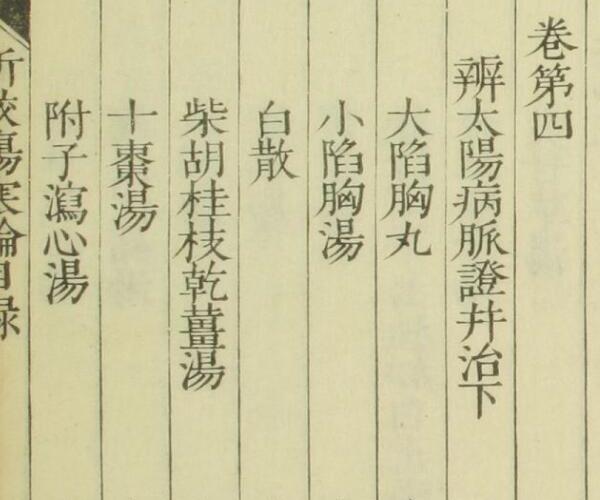 卷第四
辨太陽病脈證幷治下
大陷胸丸
小陷胸湯
白散
柴胡桂枝乾薑湯
十棗湯
附子瀉心湯
折校傷寒論目録